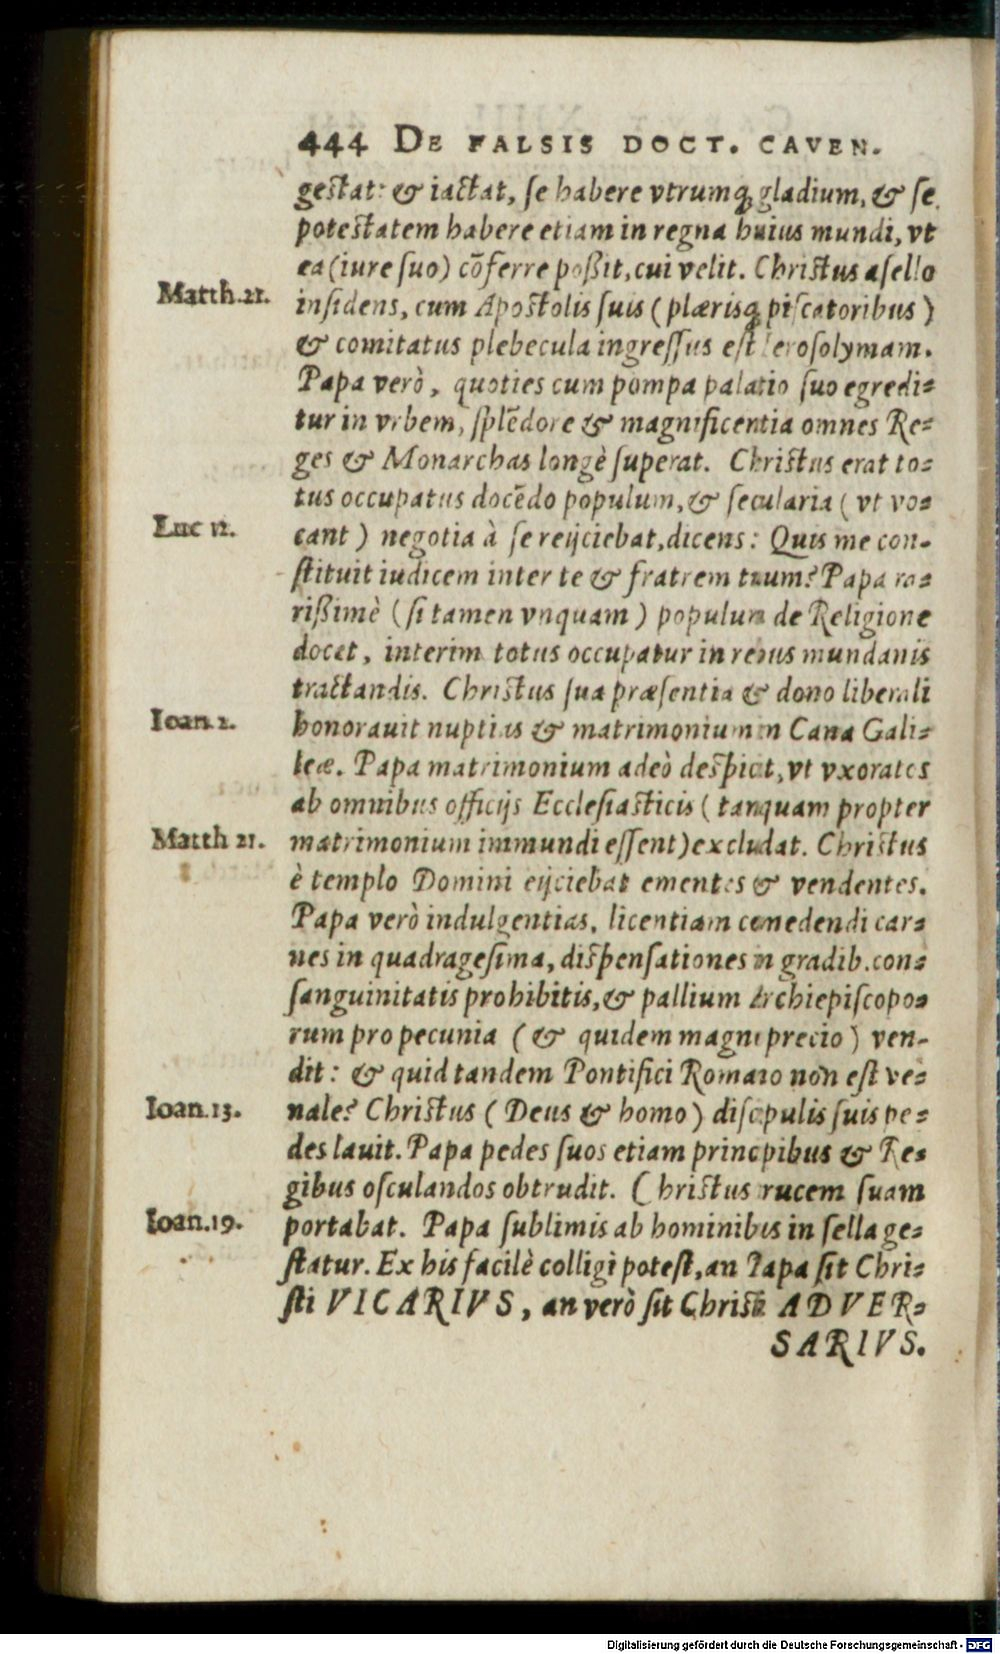 444 DE FALSIS DOCT. CAVEN.
gestat: & iactat, ſe habere vtrumq; gladium, & ſe
potestatem habere etiam in regna huius mundi, vt
ea (iure ſuo) cõferre poßit, cui velit. Christus aſello
Matth. 21.
inſidens, cum Apostolis ſuis (plæriſq; piſcatoribus)
& comitatus plebecula ingreſſus est Ieroſolymam.
Papa verò, quoties cum pompa palatio ſuo egredi=
tur in vrbem, ſplẽdore & magnificentia omnes Re=
ges & Monarchas longè ſuperat. Christus erat to=
tus occupatus docẽdo populum, & ſecularia (vt vo=
Luc 12.
cant) negotia à ſe reijciebat, dicens: Quis me con-
ſtituit iudicem inter te & fratrem tuum? Papa ra=
rißimè (ſi tamen vnquam) populum de Religione
docet, interim totus occupatur in rebus mundanis
tractandis. Christus ſua præſentia & dono liberali
Ioan. 2.
honorauit nuptias & matrimonium in Cana Gali=
leæ. Papa matrimonium adeò deſpicit, vt vxorates
ab omnibus officijs Eccleſiasticis (tanquam propter
Matth 21.
matrimonium immundi eſſent) excludat. Christus
è templo Domini eijciebat ementes & vendentes.
Papa verò indulgentias, licentiam comedendi car=
nes in quadrageſima, diſpenſationes in gradib. con=
ſanguinitatis prohibitis, & pallium Archiepiſcopo=
rum pro pecunia (& quidem magni precio) ven-
dit: & quid tandem Pontifici Romano non eſt ve=
Ioan. 13.
nale? Christus (Deus & homo) diſcipulis ſuis pe=
des lauit. Papa pedes ſuos etiam principibus & Re=
gibus oſculandos obtrudit. Christus crucem ſuam
Ioan. 19.
portabat. Papa ſublimis ab hominibus in ſella ge=
ſtatur. Ex his facilè colligi poteſt, an Papa ſit Chri=
ſti VICARIVS, an verò ſit Christi ADVER=
SARIVS.
Digitalisierung gefördert durch die Deutsche Forschungsgemeinschaft - DFG